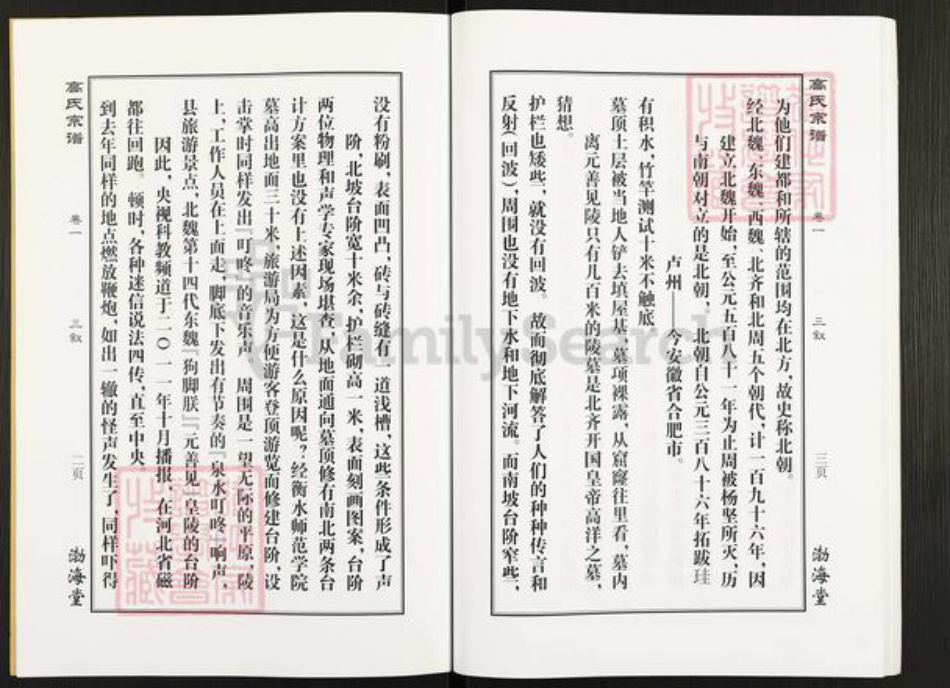 高氏宗谱 卷一 三叙 二页 渤海堂
到去年同样的地点燃放鞭炮，如出一辙的怪声发生了，同样吓得
都往回跑。顿时，各种迷信说法四传，直至中央
因此，央视科教频道于二〇一一年十月播报，在河北省磁
县旅游景点，北魏第十四代东魏『狗脚朕』元善见皇陵的台阶
上，工作人员在上面走，脚底下发出有节奏的『泉水叮咚』响声，
击掌时同样发出『叮咚』的音乐声。周围是一望无际的平原，陵
墓高出地面三十米，旅游局为方便游客登顶游览而修建台阶，设
计方案里也没有上述因素，这是什么原因呢？经衡水师范学院
两位物理和声学专家现场堪查，从地面通向墓顶修有南北两条台
阶，北坡台阶宽十米余，护栏砌高一米，表面刻画图案，台阶
没有粉刷，表面凹凸，砖与砖缝有一道浅槽，这些条件形成了声
反射（回波），周围也没有地下水和地下河流。而南坡台阶窄些，
护栏也矮些，就没有回波。故而彻底解答了人们的种种传言和
猜想。
离元善见陵只有几百米的陵墓是北齐开国皇帝高洋之墓，
墓顶土层被当地人铲去填屋基，墓项裸露，从窟窿往里看，墓内
有积水，竹竿测试十米不触底
卢州——今安徽省合肥市。
与南朝对立的是北朝：北朝自公元三百八十六年拓跋珪
建立北魏开始，至公元五百八十一年为止周被杨坚所灭，历
经北魏、东魏、西魏、北齐和北周五个朝代，计一百九十六年，因
为他们建都和所辖的范围均在北方，故史称北朝。
高氏宗谱 卷一 三叙 三页 渤海堂
FamilySearch